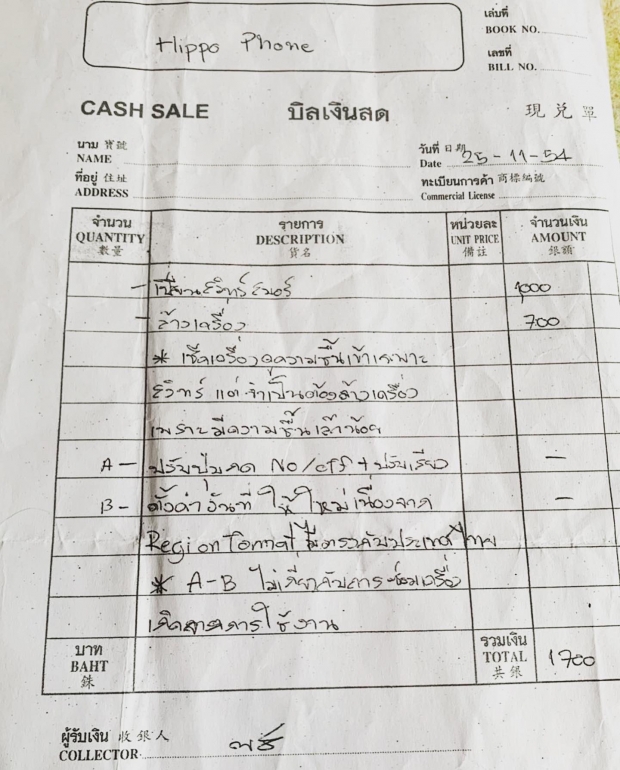 Hippo Phone
เล่มที่
BOOK NO.
เลขที่
BILL NO.
CASH SALE บิลเงินสด 現兌單
นาม 寶號
NAME
วันที่ 日期
Date 25-11-54
ที่อยู่ 住址
ADDRESS
ทะเบียนการค้า 商標編號
Commercial License
จำนวน รายการ หน่วยละ จำนวนเงิน
QUANTITY DESCRIPTION UNIT PRICE AMOUNT
數量 貨名 備註 銀額
- เปลี่ยนสวิทซ์ 1,000
- ล้างเครื่อง 700
* เช็คเครื่อง ความชื้นเข้าเฉพาะ
สวิทซ์ แต่จำเป็นต้องล้างเครื่อง
เพราะมีความชื้นเล็กน้อย
A - ปรับปุ่มกด No/off + ปรับเสียง -
B - ตั้งค่าวันที่ ให้ใหม่เนื่องจาก -
Region Format ไม่ตรงกับประเทศไทย
* A-B ไม่เกี่ยวกับการซ่อมเครื่อง
เกิดจากการใช้งาน
บาท
BAHT
銖
รวมเงิน
TOTAL 1700
共銀
ผู้รับเงิน 收銀人
COLLECTOR